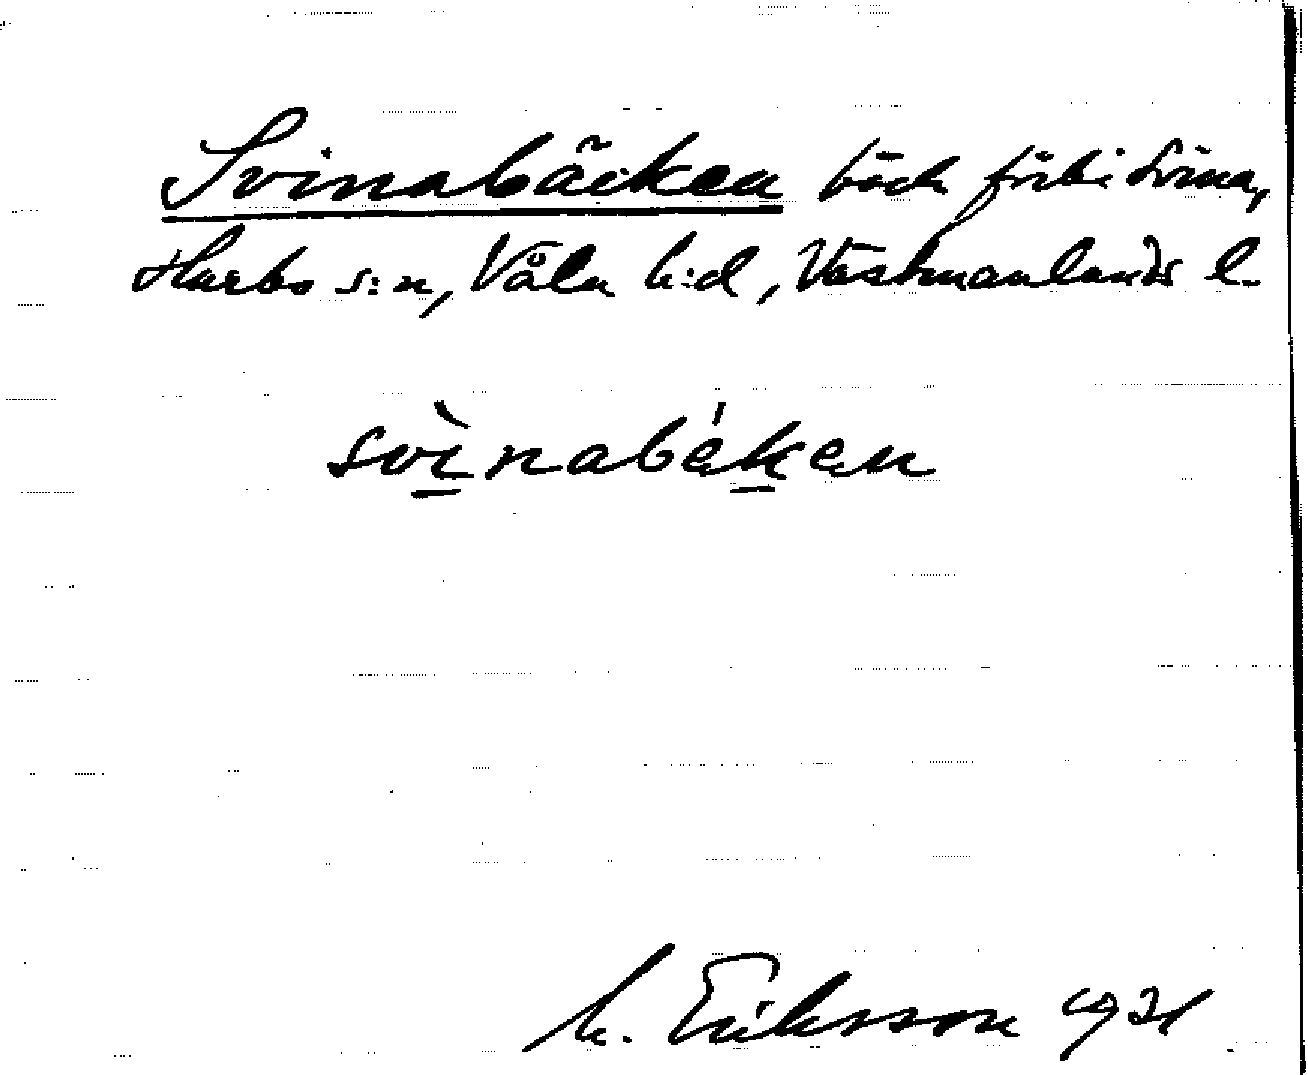 Svinabäcken bäck förbi Svina,
Harbo s:n, Våla h:d, Västmanlands l.
svìnabéken
M. Eriksson 1931